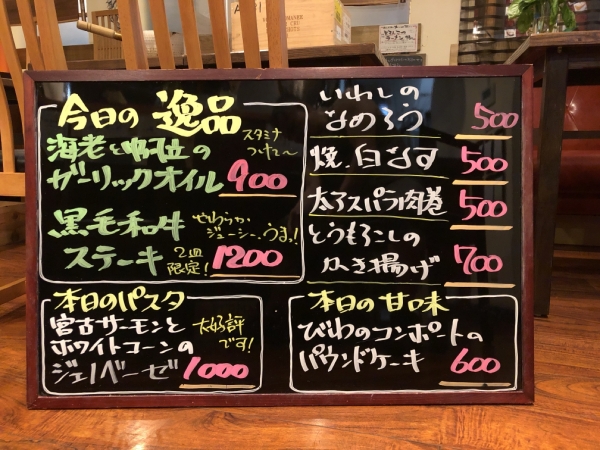 今日の 逸品
海老と帆立の
ガーリックオイル 900
スタミナ
つけて〜
黒毛和牛
ステーキ 1200
やわらか
ジューシー、うまっ!
2皿
限定!
本日のパスタ
宮古サーモンと
ホワイトコーンの
ジェノベーゼ 1000
大好評
です!
いわしの
なめろう 500
焼 白なす 500
太アスパラ肉巻 500
とうもろこしの
かき揚げ 700
本日の甘味
びわのコンポートの
パウンドケーキ 600